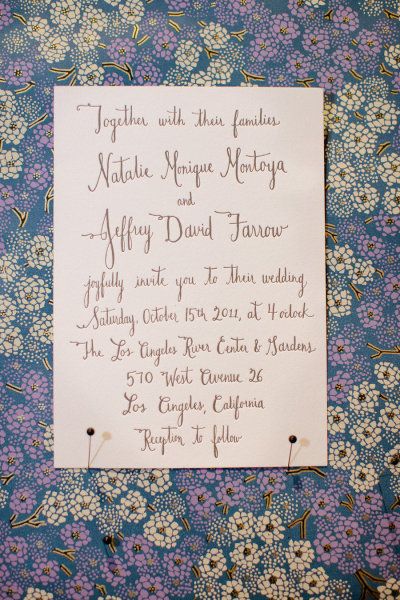 Together with their families
Natalie Monique Montoya
and
Jeffrey David Farrow
joyfully invite you to their wedding
Saturday, October 15th 2011, at 4 o'clock
The Los Angeles River Center & Gardens
570 West Avenue 26
Los Angeles, California
Reception to follow